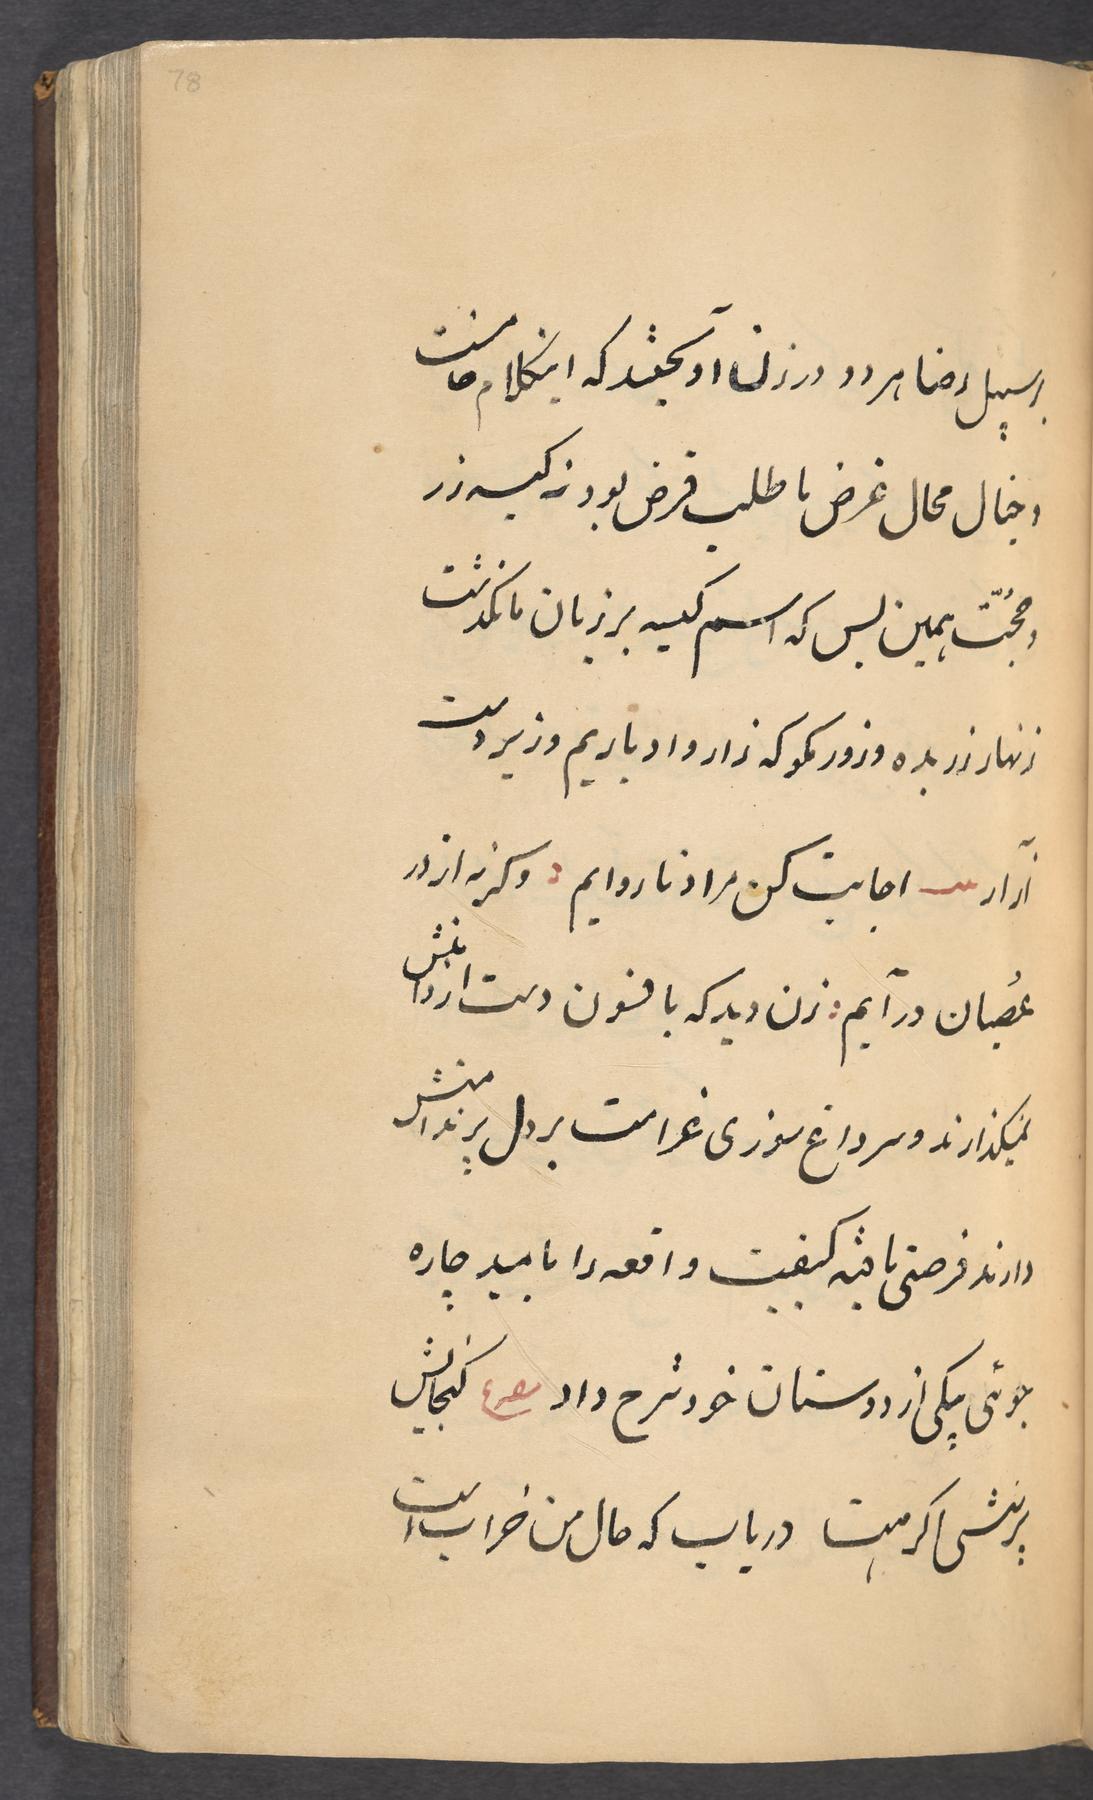 78
بر سبیل رضا هر دو در زن آویختند که این کلام خامست
و خیال محال غرض ما طلب قرض بود نه کیسه زر
و حجّت همین بس که اسم کیسه بر زبان ما نگذشت
زنهار زر بده و زور مگو که زار و ادباریم و زیردست
آزار اجابت کن مراد ناروایم وگرنه از در
عصیان درآیم زن دید که بافسون دست از دامنش
نمیگذارند و سر داغ سوزی غرامت بر دل پر
دارند فرصتی یافته کیفیت واقعه را بامید چاره
جوئی بیکی از دوستان خود شرح داد مصرع گنجایش
پرسشی اگر هست دریاب که حال من خرابست